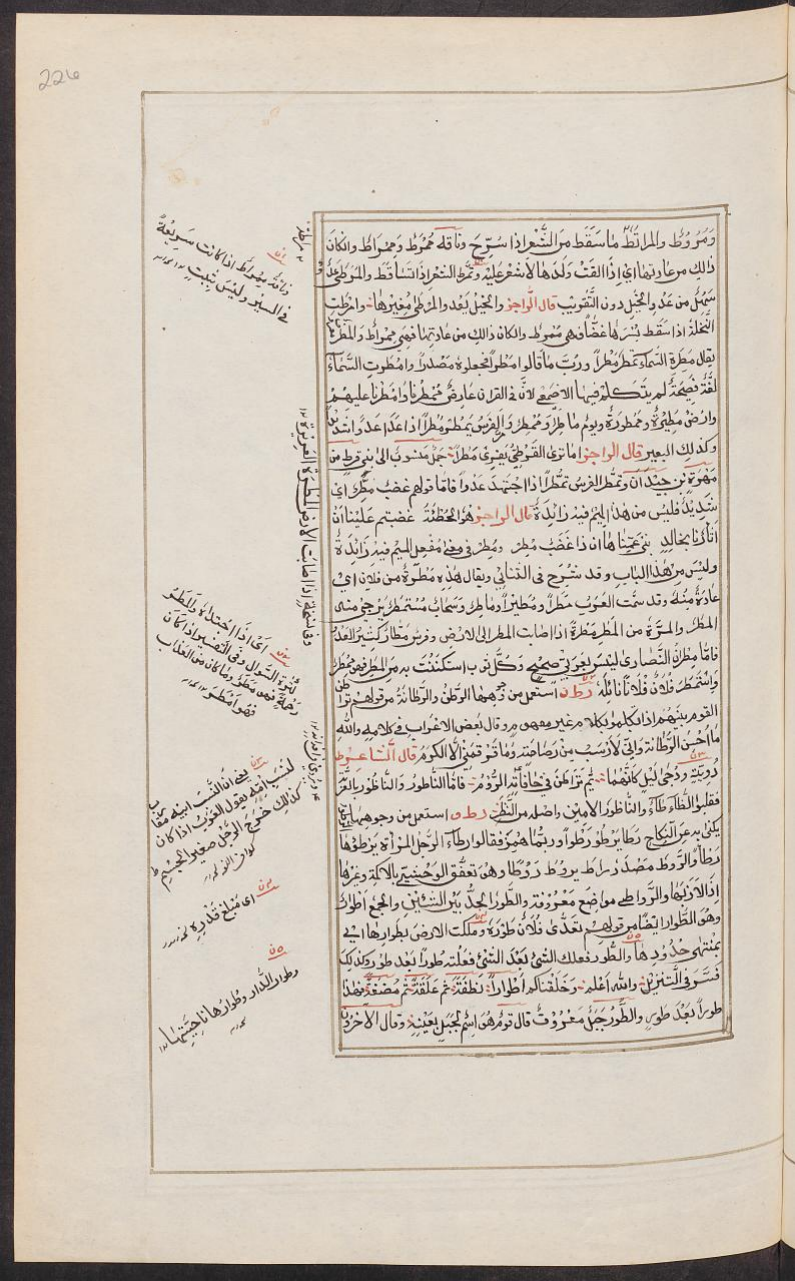 226
ومروط والمراطة ما سقط من الشعر اذا سرح وناقة ممرط وممراط وان كان
ذلك من عادتها اي اذا القت ولدها لا شعر عليه وتمرط الشعر اذا تساقط والمرطى عدو
سهل من عدو الخيل دون التقريب قال الراجز والخيل تعدو المرطى مغيرها وامرطت
النخلة اذا سقط بسرها غضا فهي ممرط وان كان ذلك من عادتها فهي ممراط والمطر
يقال مطرت السماء تمطر مطرا وربما قالوا مطرا فجعلوه مصدرا وامطرت السماء
لغة فصيحة لم يتكلم فيها الاصمعي لان في القران عارض ممطرنا وامطرنا عليهم
وارض مطيرة وممطورة ويوم ماطر وممطر ومر الفرس يمطر مطرا اذا عدا عدوا شديدا
وكذلك البعير قال الراجز اما ترى القرطي يفري مطرا جمل منسوب الى بني قرط من
مهرة بن حيدان وتمطر الفرس تمطرا اذا اجتهد عدوا فاما قولهم غضب مطر اي
شديد فليس من هذا الميم فيه زائدة قال الراجز هو الحطئة غضبتم علينا ان
بخالد بني عمنا ها ان ذا غضب مطر ومطر في معنى مفعل الميم فيه زائدة
وليس من هذا الباب وقد شرح في الثنائي ويقال هذه مطرة من فلان اي
عادة منه وقد سمت العرب مطرا ومطيرا وماطرا وسحاب مستمطر يرجى منه
المطر والمرة من المطر مطرة اذا اصابت المطر الى الارض وفرس مطار كثير العدو
فاما مطران النصارى ليس بعربي صحيح وكل ثوب استكننت به من المطر فهو ممطر
واستمطر فلان فلانا نائله رطن استعمل من وجوهها الرطن والرطانة من قولهم تراطن
القوم بينهم اذا تكلموا بكلام غير مفهوم وقال بعض الاعراب في كلامه والله
ما احسن الرطانة واني لارسب من رصاصة وما قرقمني الا الكرم قال الشاعر
دوية ودجى ليل كانهما يم تراطن في حافاته الروم فاما الناطور والناظور بالعربية
فقلبوا الظاء طاء والناظور الامين واصله من النظر رطو استعمل من وجوهها
يكنى به عن النكاح رطا يرطو رطوا وربما همز فقالوا رطا الرجل المرأة يرطؤها
رطأ والروط مصدر راط يروط روطا وهو تعفق الوحشية بالاكمة وغيرها
اذا لاذ بها والرواطي مواضع معروفة والطور الحد بين الشيئين والجمع اطوار
وهو الطوار ايضا من قولهم تعدى فلان طوره وملكت الارض بطوارها اي
بمنتهى حدودها والطور فعلك الشئ بعد الشئ فعلته طورا بعد طور وكذلك
فسر في التنزيل والله اعلم وخلقناكم اطوارا نطفة ثم علقة ثم مضغة فهذا
طورا بعد طور والطور جبل معروف قال قوم هو اسم لجبل بعينه وقال الاخرون
وناقة ممراط اذا كانت سريعة
في السير وليس بثبت
وفي نسخة اذا اصابت الارض المطرة الغزيرة
لكثرة السؤال وفي التفسير اذا كان
رحمة فهو مطر وما كان من العذاب
فهو امطر
اي مبلغ قدره
وطوار الدار وطوارها ناحيتها